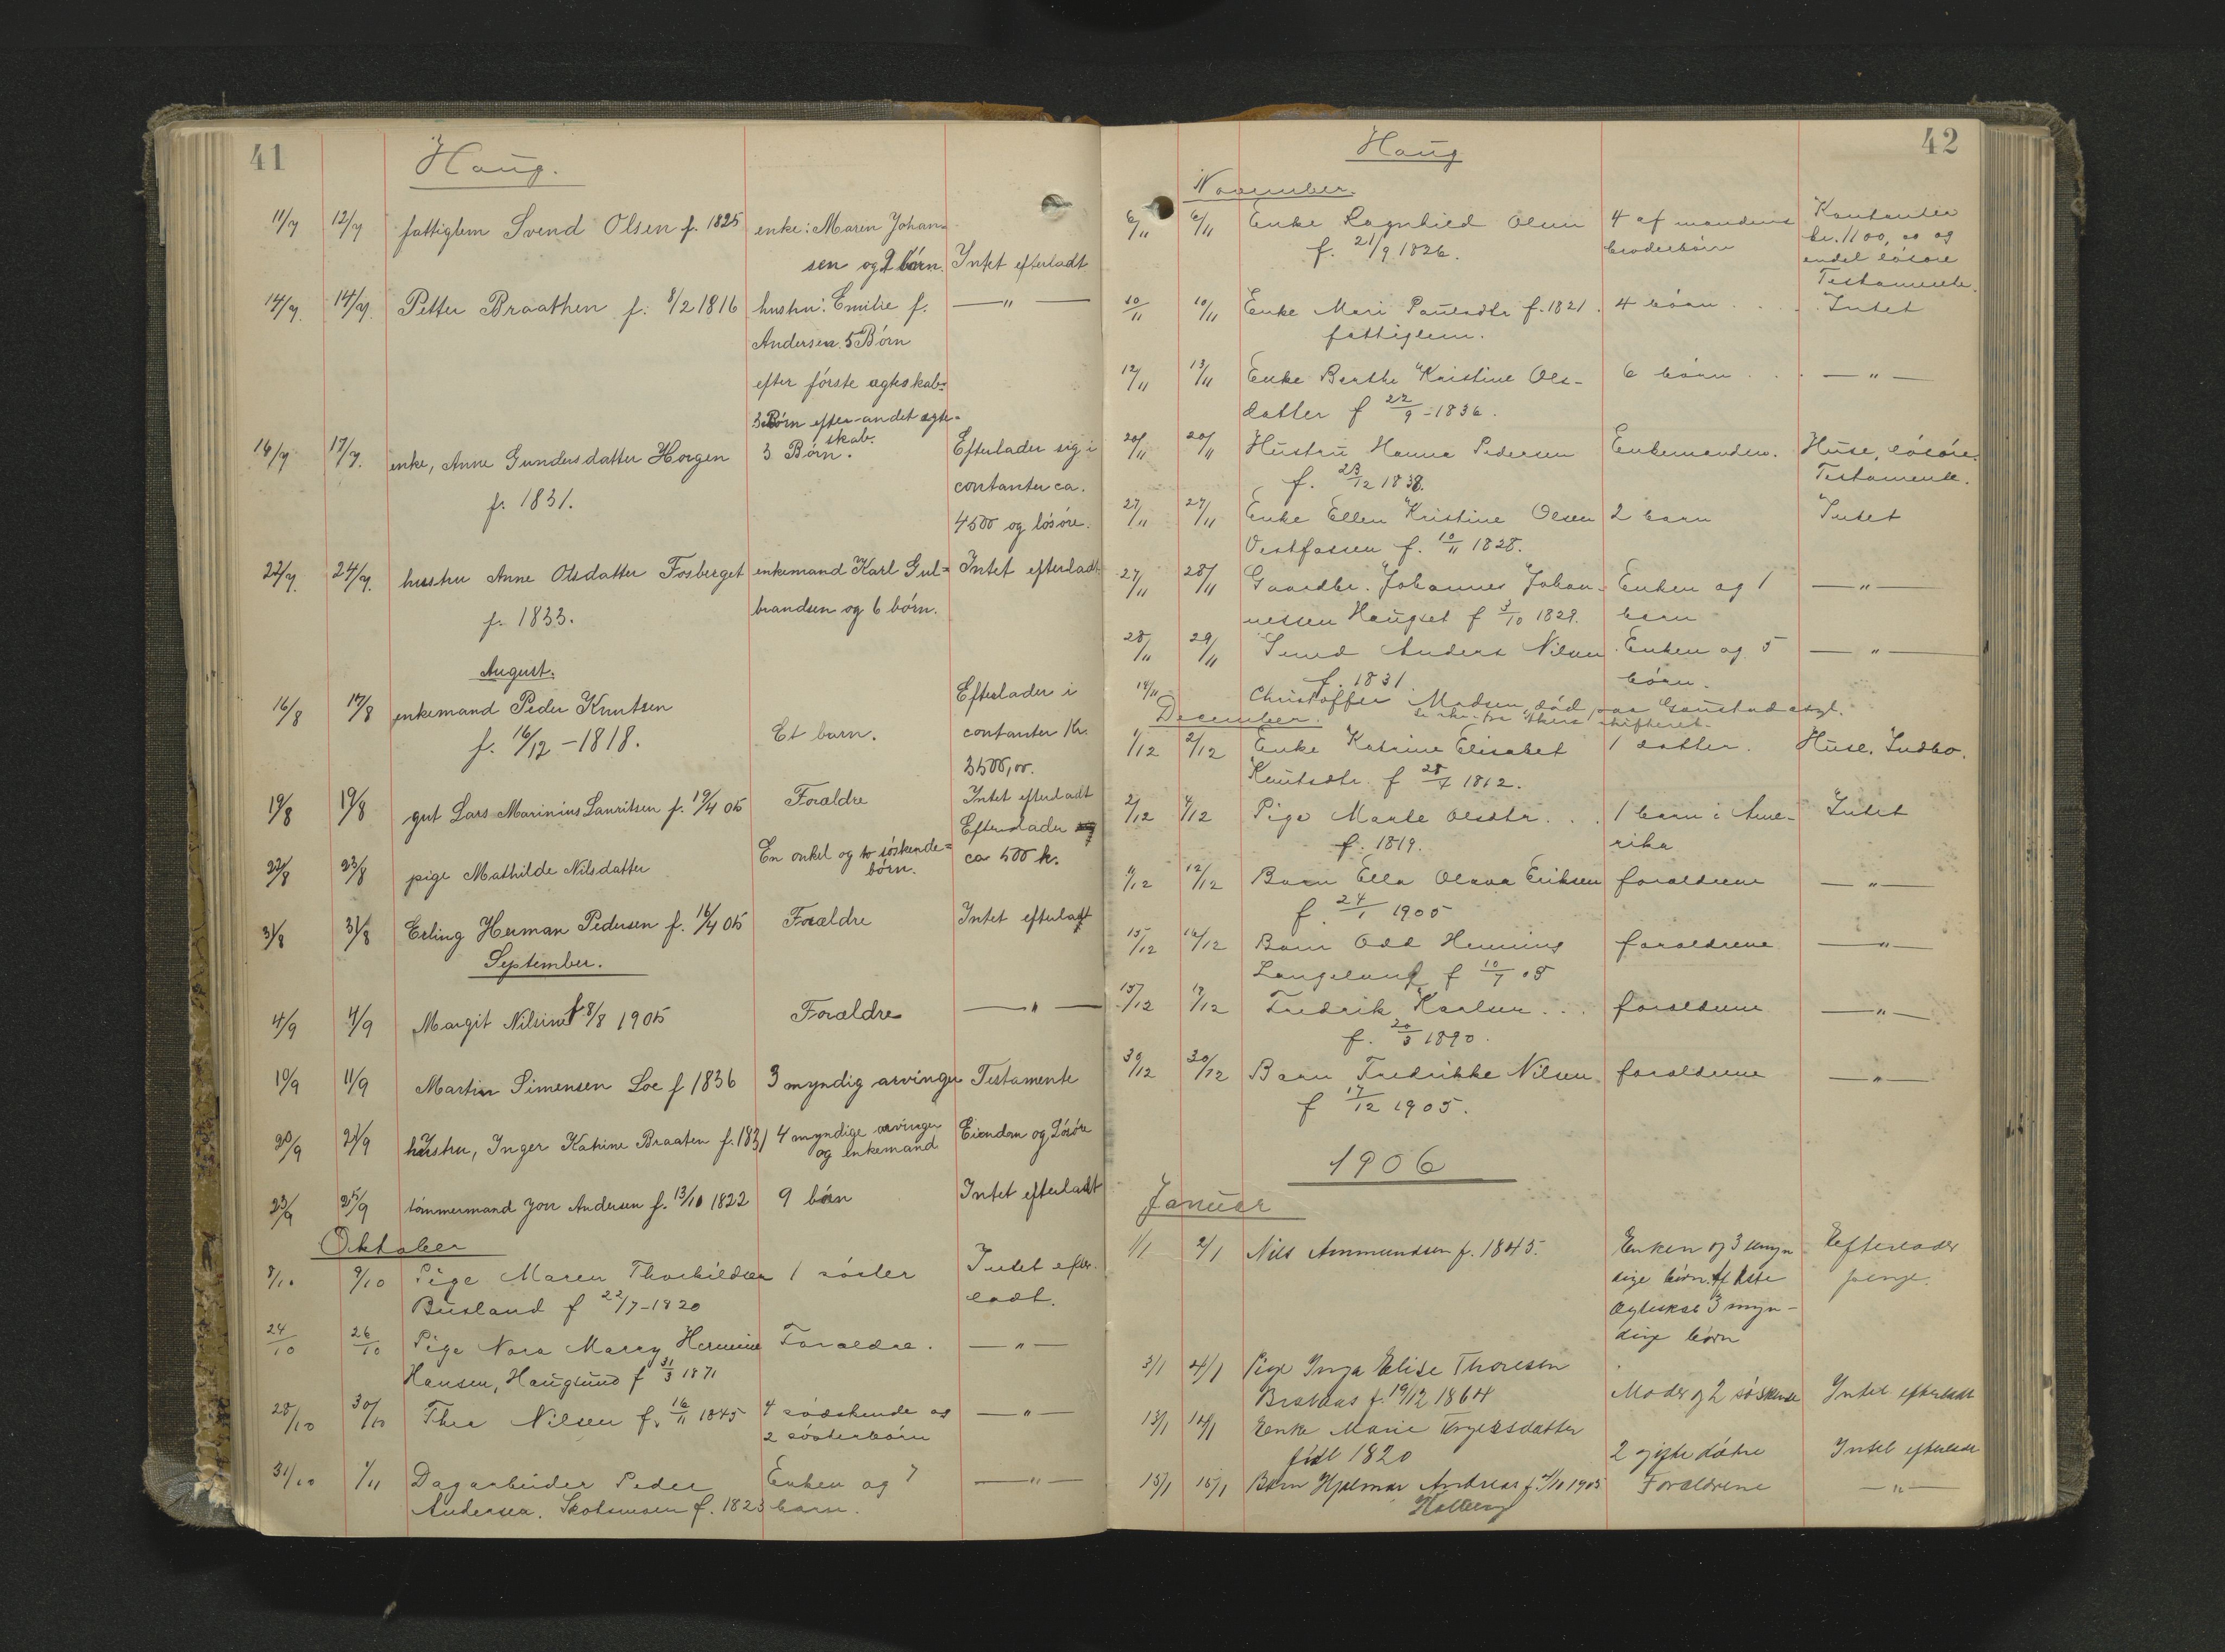 41
Haug.
11/7 12/7 fattiglem Svend Olsen f. 1825 enke: Maren Johan-
sen og 2 børn. Intet efterladt
14/7. 14/7. Petter Braathen f. 8/2 1816 hustru: Emilie f. — " —
Andersen. 5 Børn
efter første ægteskab.
3 Børn efter andet ægte-
skab.
16/7 17/7. enke, Anne Gundersdatter Horgen 3 Børn. Efterlader sig i
f. 1831. contanter ca.
4500 og løsøre.
22/7. 24/7. hustru Anne Olsdatter Fosberget enkemand Karl Gul- Intet efterladt
f. 1833. brandsen og 6 børn.
August.
16/8 17/8 enkemand Peder Knutsen Et barn. Efterlader i
f. 16/12 - 1818. contanter Kr.
3500,00.
19/8 19/8 gut Lars Marinius Lauritsen f. 19/4 05 Forældre Intet efterladt
22/8 23/8 pige Mathilde Nilsdatter En onkel og to søskende- Efterlader
børn. ca 500 k.
31/8 31/8 Erling Herman Pedersen f. 16/4 05 Forældre Intet efterladt
September.
4/9 4/9 Margit Nilsine f 8/8 1905 Forældre — " —
10/9 11/9 Martin Simensen Loe f 1836 3 myndig arvinger Testamente
20/9 21/9 hustru, Inger Katrine Braaten f. 1831 4 myndige arvinger Eiendom og Løsøre
og enkemand
23/9 25/9 tømmermand Jon Andersen f. 13/10 1822 9 børn Intet efterladt
Oktober
8/10 9/10 Pige Maren Thorkildsen 1 søster Intet efter-
Busland f 22/7 - 1820 ladt.
24/10 26/10 Pige Nora Marry Hermine Forældre. — " —
Hansen, Hauglund f 31/3 1871
28/10 30/10 Thea Nilsen f. 16/11 1845 4 søskende og — " —
2 søsterbørn
31/10 1/11 Dagarbeider Peder Enken og 7 — " —
Andersen. Skotsmoen f. 1823 barn.
42
Haug
November.
6/11 6/11 Enke Ragnhild Olsen 4 af mandens Kontanter
f. 21/9 1826. broderbørn kr. 1100,00 og
endel løsøre
Testamente.
10/11 10/11 Enke Mari Paulsdtr f. 1821. 4 børn . . . Intet
fattiglem.
12/11 13/11 Enke Berthe Kristine Ols- 6 børn . . . — " —
datter f 22/9 - 1836.
20/11 20/11 Hustru Hanna Pedersen Enkemanden. Huse, løsøre.
f. 23/12 1838. Testamente.
27/11 27/11 Enke Ellen Kristine Olsen 2 barn Intet
Vestfossen f. 10/11 1828.
27/11 28/11 Gaardbr. Johannes Johan- Enken og 1 — " —
nessen Haugset f 3/10 1829. barn
28/11 29/11 Smed Anders Nilsen Enken og 5 — " —
f. 1831. børn.
14/11 Christoffer Madsen død paa Gaustad asyl.
December.
1/12 2/12 Enke Katrine Elisabet 1 datter. Huse. Indbo.
Knutsdtr. f 28/4 1812.
2/12 4/12 Pige Marte Olsdtr. . . . 1 barn i Ame- Intet
f. 1819. rika
11/12 12/12 Barn Ella Olava Eriksen forældrene — " —
f. 24/1 1905
15/12 16/12 Barn Odd Henning forældrene — " —
Langeland f 10/7 05
15/12 17/12 Fredrik Karlsen . . . forældrene — " —
f. 20/3 1890.
30/12 30/12 Barn Fredrikke Nilsen forældrene — " —
f 17/12 1905.
1906
Januar
1/1 2/1 Nils Ammundsen f. 1845. Enken og 3 umyn Efterlader
dige børn. Af 1ste penge.
Ægteskab 3 myn-
dige børn
3/1 4/1 Pige Inga Elise Thoresen
f. 19/12 1864 Moder og 2 søskende Intet efterladt
13/1 14/1 Enke Marie
født 1820 2 gifte døtre Intet efterladt
15/1 15/1 Barn Hjalmar Andreas f. 1/10 1905 Forældrene — " —